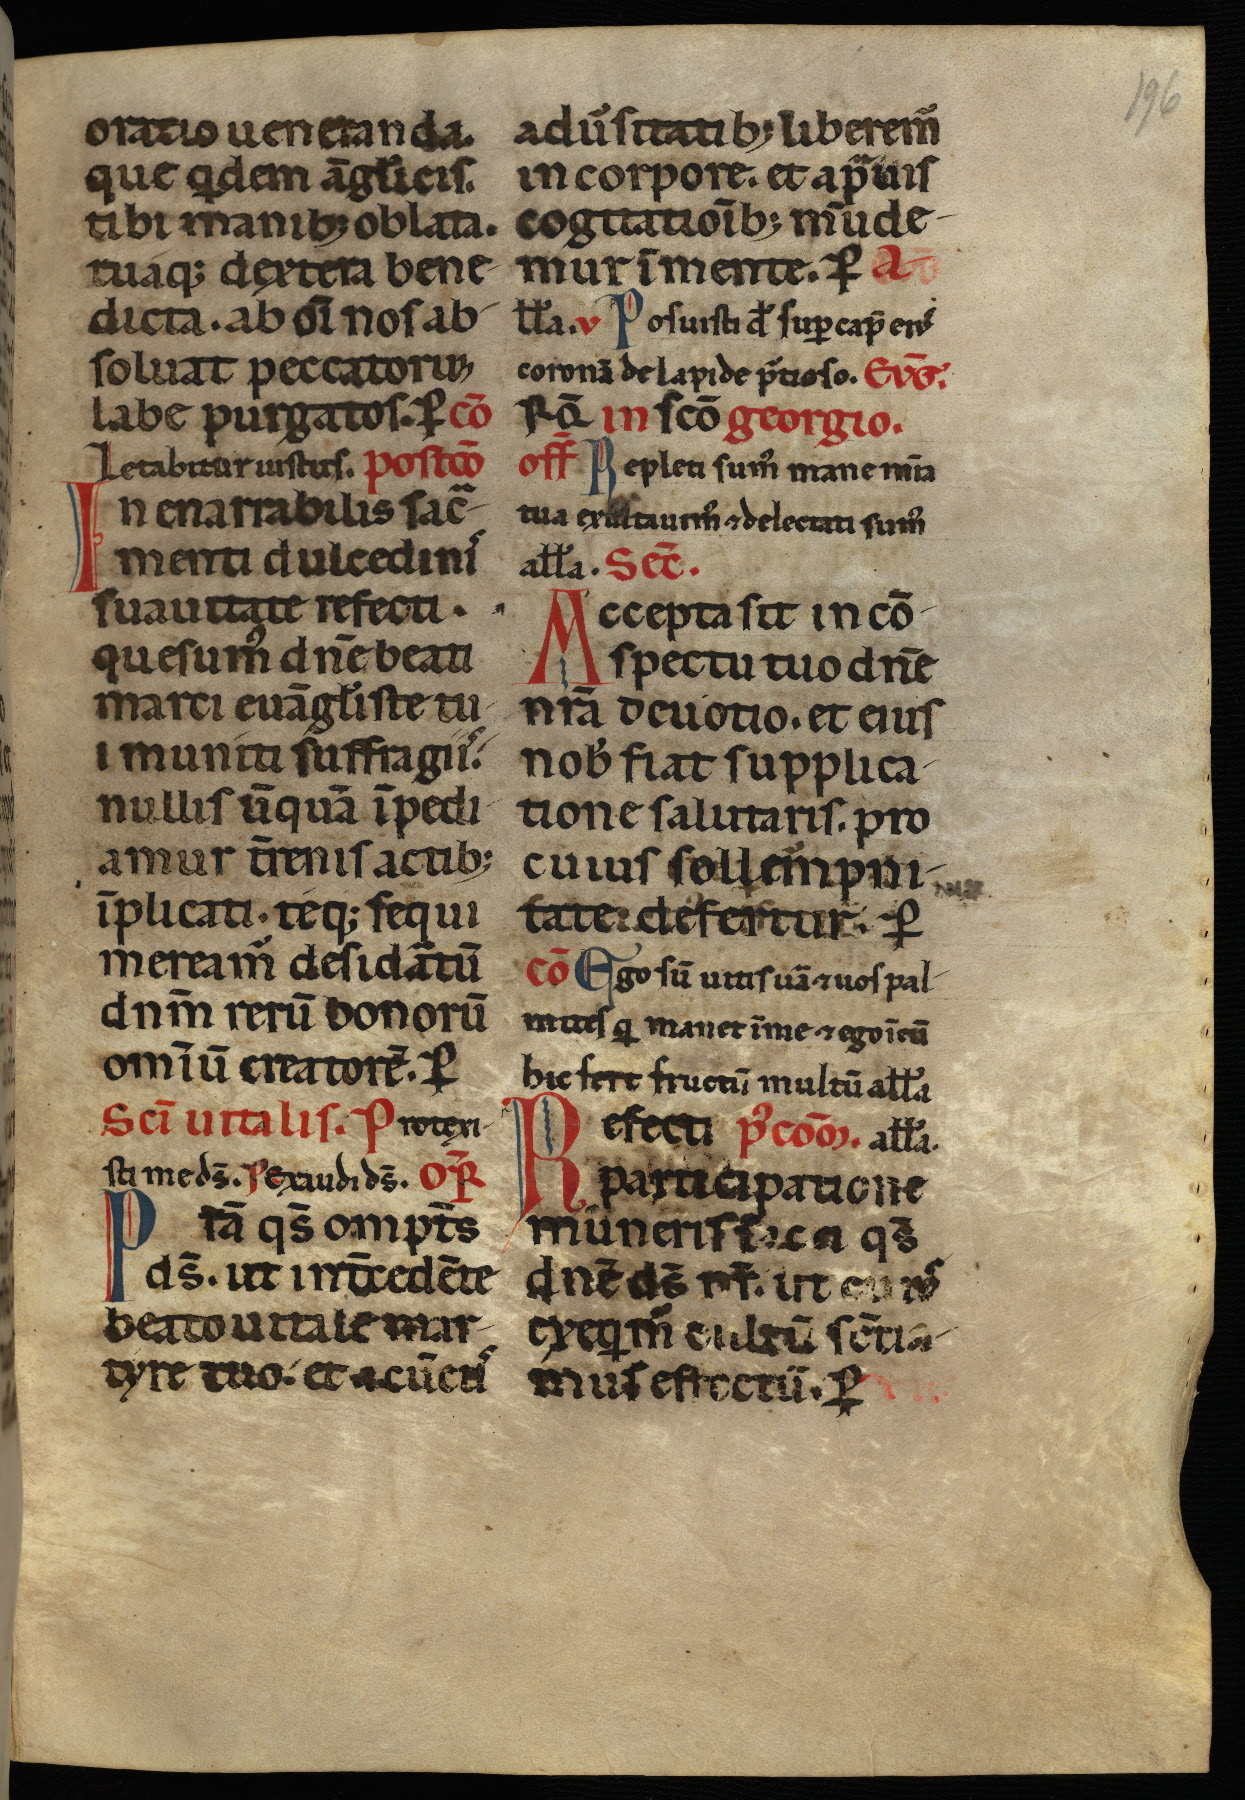 196
oratio ueneranda.
que qdem āgl̄icis.
tibi manib; oblata.
tuaq; dextera bene-
dicta. ab oī nos ab-
soluat peccatorum
labe purgatos. P̄ cō
Letabitur iustus. postcō
Inenarrabilis sac̄-
menti dulcedinis
suauitate refecti.
quesum᷒ dn̄e beati
marci euāgl̄iste tu-
i muniti suffragiis.
nullis ūquā īpedi-
amur t̄renis actib;
īplicati. teq; sequi
meream᷒ desid̄atū
dnm̄ rerū bonorū
omīū creatorē. P̄
Scī uitalis. Protexi-
sti me ds̄. P̄ Exaudi ds̄. OR̄
P̄ta qs̄ omp̄ts
ds̄. ut int̄cedēte
beato uitale mar-
tyre tuo. et a cūctis
adūsitatib; liberem᷒
in corpore. et a p̄uis
cogitatioīb; mūde-
mur ī mente. P̄ A
ll̄a. v Posuisti d̄ sup̄ cap̄ ei᷒
coronā de lapide p̄tioso. Ev̄g.
R̄Q̄ in scō georgio.
off̄ Repleti sum᷒ mane mīa
tua exultauim᷒ ⁊ delectati sum᷒
all̄a. Sec̄.
Accepta sit in cō-
spectu tuo dn̄e
nr̄a deuotio. et eius
nob̄ fiat supplica-
tione salutaris. pro
cuius sollempni-
tate defertur. P̄
cō Ego sū uitis uā ⁊ uos pal-
mites q̄ manet ī me ⁊ ego ī eū
hic fert fructū multū all̄a
Refecti p᷒cōm̄. all̄a.
participatione
muneris sac̄ qs̄
dn̄e ds̄ nr̄. ut cui᷒
exeq̄m᷒ cultū sētia-
mus effectū. P̄